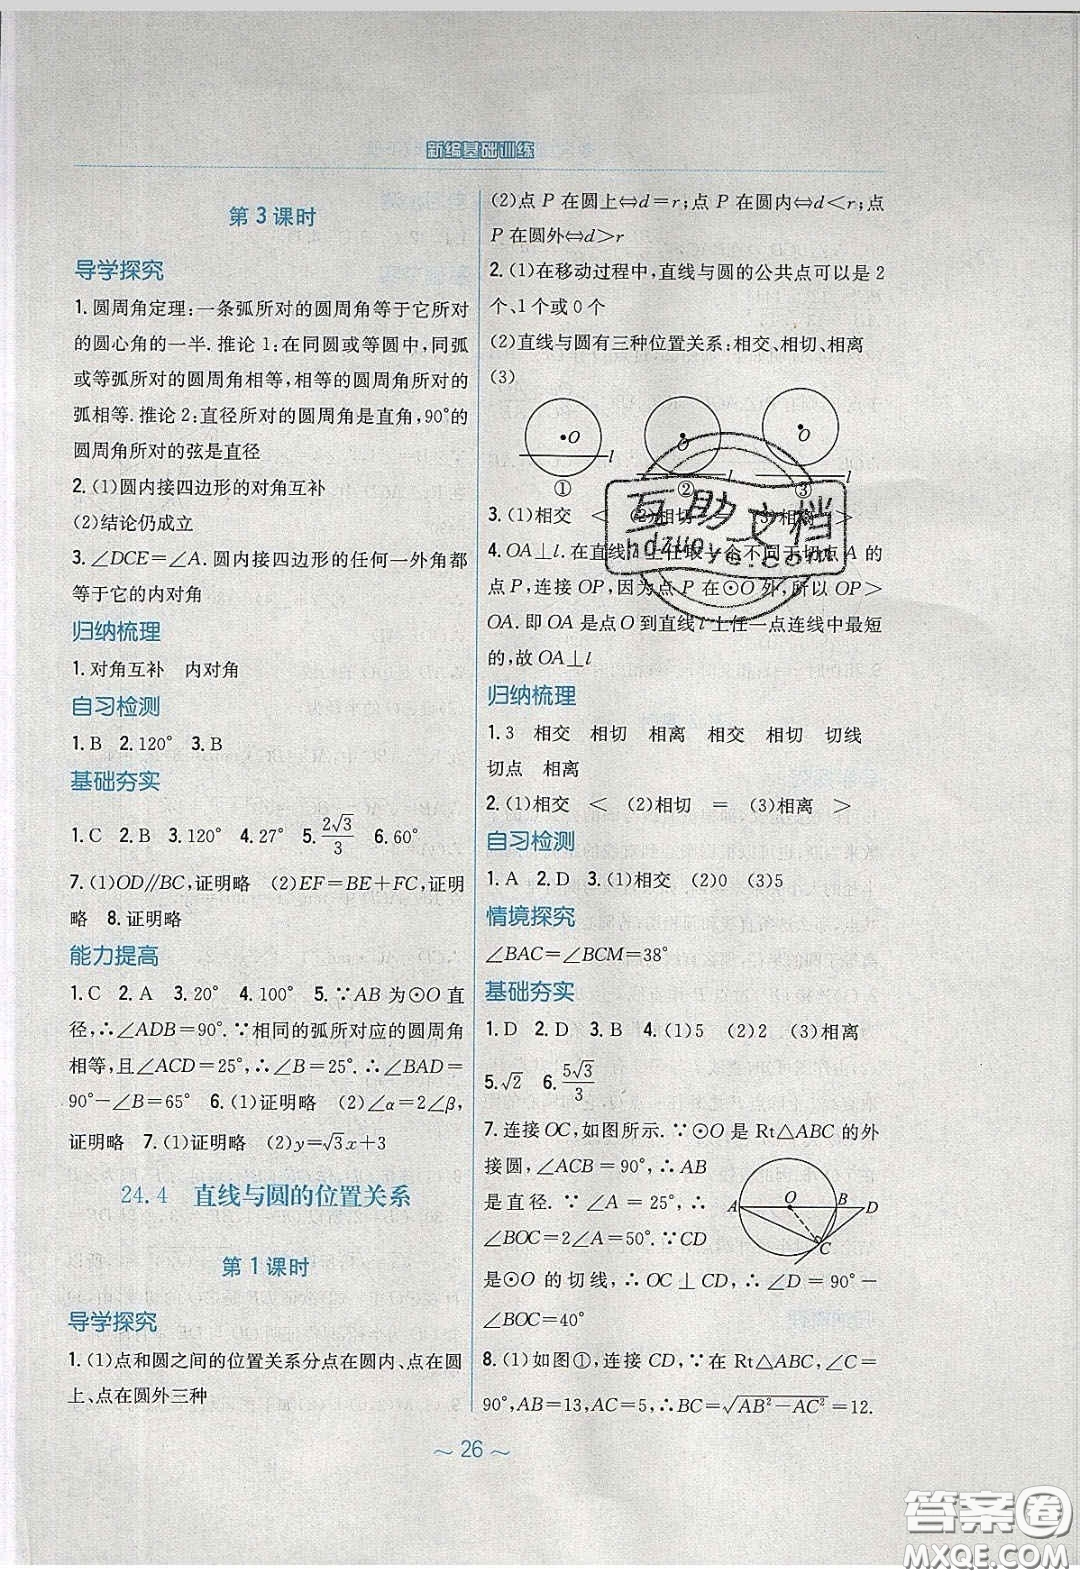 新编基础训练
第3课时
导学探究
1.圆周角定理:一条弧所对的圆周角等于它所对
的圆心角的一半.推论1:在同圆或等圆中,同弧
或等弧所对的圆周角相等,相等的圆周角所对的
弧相等.推论2:直径所对的圆周角是直角,90°的
圆周角所对的弦是直径
2.(1)圆内接四边形的对角互补
(2)结论仍成立
3.∠DCE=∠A.圆内接四边形的任何一外角都
等于它的内对角
归纳梳理
1.对角互补 内对角
自习检测
1.B 2.120° 3.B
基础夯实
1.C 2.B 3.120° 4.27° 5.2√3/3 6.60°
7.(1)OD∥BC,证明略 (2)EF=BE+FC,证明
略 8.证明略
能力提高
1.C 2.A 3.20° 4.100° 5.∵AB为⊙O直
径,∴∠ADB=90°.∵相同的弧所对应的圆周角
相等,且∠ACD=25°,∴∠B=25°.∴∠BAD=
90°-∠B=65° 6.(1)证明略 (2)∠α=2∠β,
证明略 7.(1)证明略 (2)y=√3x+3
24.4 直线与圆的位置关系
第1课时
导学探究
1.(1)点和圆之间的位置关系分点在圆内、点在圆
上、点在圆外三种
(2)点P在圆上⇔d=r;点P在圆内⇔d<r;点
P在圆外⇔d>r
2.(1)在移动过程中,直线与圆的公共点可以是2
个、1个或0个
(2)直线与圆有三种位置关系:相交、相切、相离
(3)
O l O O l
① ② ③
3.(1)相交 < (2)相切 = (3)相离 >
4.OA⊥l.在直线l上任取一个不同于切点A的
点P,连接OP,因为点P在⊙O外,所以OP>
OA.即OA是点O到直线l上任一点连线中最短
的,故OA⊥l
归纳梳理
1.3 相交 相切 相离 相交 相切 切线
切点 相离
2.(1)相交 < (2)相切 = (3)相离 >
自习检测
1.A 2.D 3.(1)相交 (2)0 (3)5
情境探究
∠BAC=∠BCM=38°
基础夯实
1.D 2.D 3.B 4.(1)5 (2)2 (3)相离
5.√2 6.5√3/3
7.连接OC,如图所示.∵⊙O是Rt△ABC的外
接圆,∠ACB=90°,∴AB
是直径.∵∠A=25°,∴
∠BOC=2∠A=50°.∵CD
是⊙O的切线,∴OC⊥CD,∴∠D=90°-
∠BOC=40°
A O B D C
8.(1)如图①,连接CD,∵在Rt△ABC,∠C=
90°,AB=13,AC=5,∴BC=√(AB²-AC²)=12.
～26～
互助文档
hdzuoye.com
答案圈
MXQE.COM